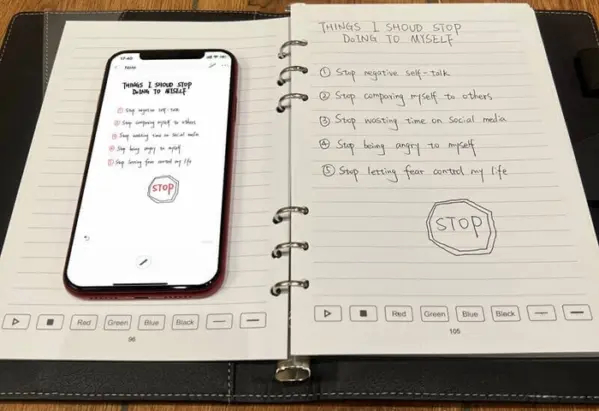 THINGS I SHOUD STOP
DOING TO MYSELF
① Stop negative self-talk
② Stop comparing myself to others
③ Stop wasting time on social media
④ Stop being angry to myself
⑤ Stop letting fear control my life
STOP
Red Green Blue Black
96
THINGS I SHOUD STOP
DOING TO MYSELF
① Stop negative self-talk
② Stop comparing myself to others
③ Stop wasting time on social media
④ Stop being angry to myself
⑤ Stop letting fear control my life
STOP
Red Green Blue Black
105